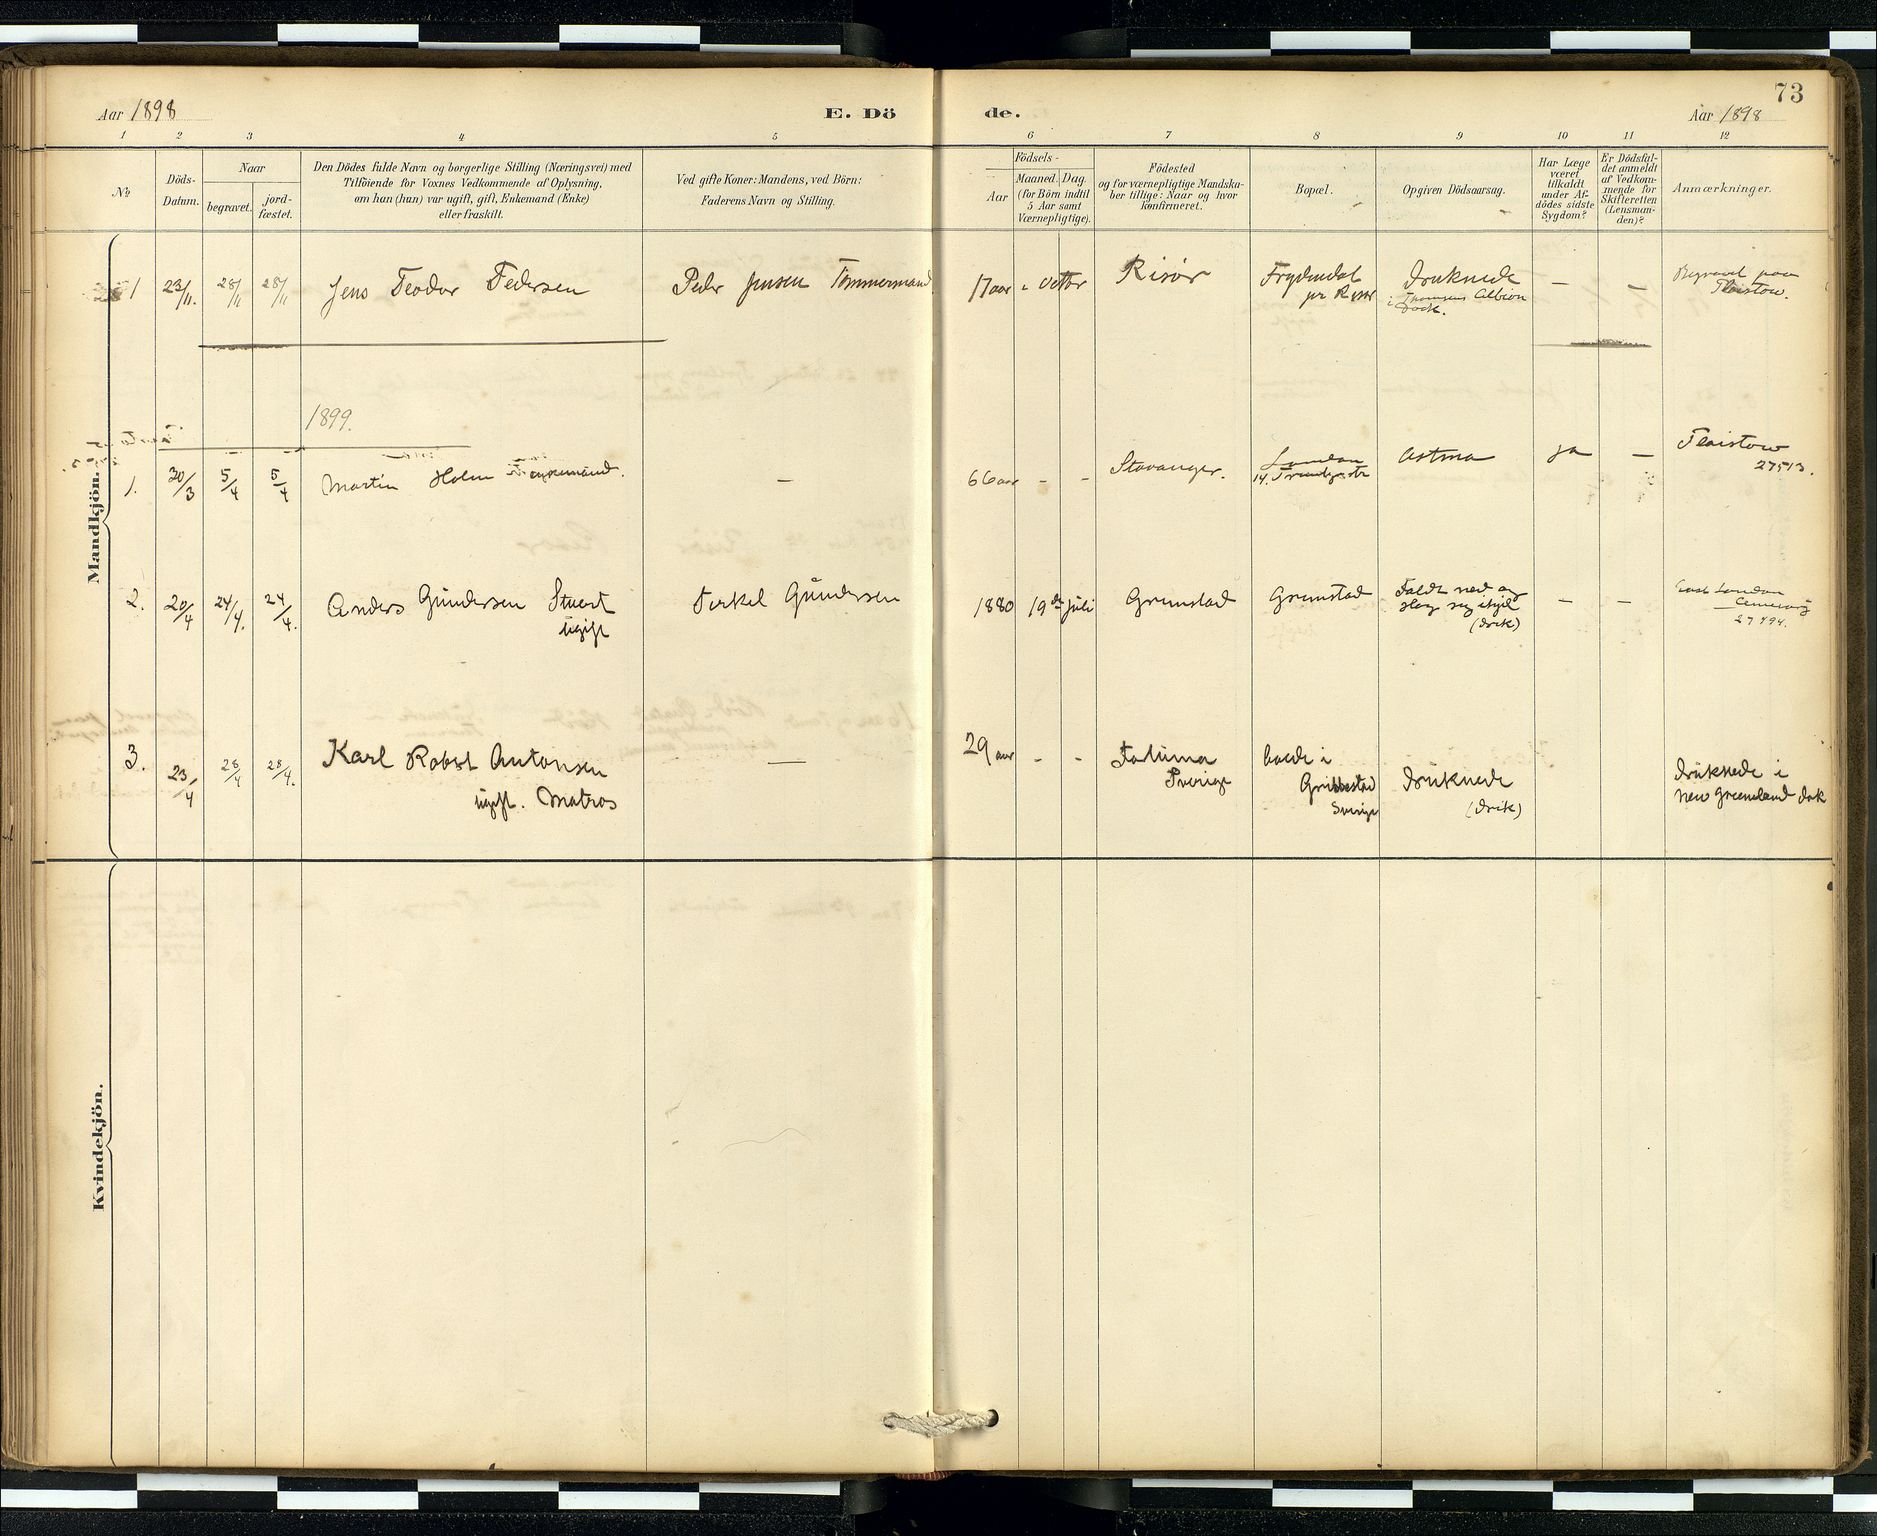 73
Aar 1898
E. Dö
de.
Aar 1898
1 2 3 4 5 6 7 8 9 10 11 12
No
Döds-
Datum.
Naar
begravet.
jord-
fæstet.
Den Dödes fulde Navn og borgerlige Stilling (Næringsvei) med
Tilföiende for Voxnes Vedkommende af Oplysning,
om han (hun) var ugift, gift, Enkemand (Enke)
eller fraskilt.
Ved gifte Koner: Mandens, ved Börn:
Faderens Navn og Stilling.
Födsels-
Aar
Maaned.
Dag.
(for Börn indtil
5 Aar samt
Værnepligtige).
Födested
og for værnepligtige Mandska-
ber tillige: Naar og hvor
konfirmeret.
Bopæl.
Opgiven Dödsaarsag.
Har Læge
været
tilkaldt
under Af-
dödes sidste
Sygdom?
Er Dödsfal-
det anmeldt
af Vedkom-
mende for
Skifteretten
(Lensman-
den)?
Anmærkninger.
Mandkjön.
1 23/11. 28/11 28/11 Jens Teodor Pedersen
Peder Jensen Tömmermand
17 aar - Oktbr
Risör
Frydendal
pr Risör
Druknede
i Thomsens Albion
Dock.
— —
Begravet paa
Plaistow.
1899.
1. 30/3 5/4 5/4 Martin Holm enkemand.
—
66 aar - -
Stavanger.
London
14.
Astma
ja
—
Plaistow
27513.
2. 20/4 24/4. 24/4. Anders Gundersen Stuert
ugift
Terkel Gundersen
1880 19de juli
Grimstad
Grimstad
Faldt ned og
slog seg ihjel
(drik)
— —
East London
Cemetary
27794.
3. 23/4 28/4 28/4. Karl Robert Antonsen
ugift. Matros
—
29 aar - -
Sverige
boede i
Gribbestad
Sverige
druknede
(drik)
druknede i
New Greenland dok
Kvindekjön.